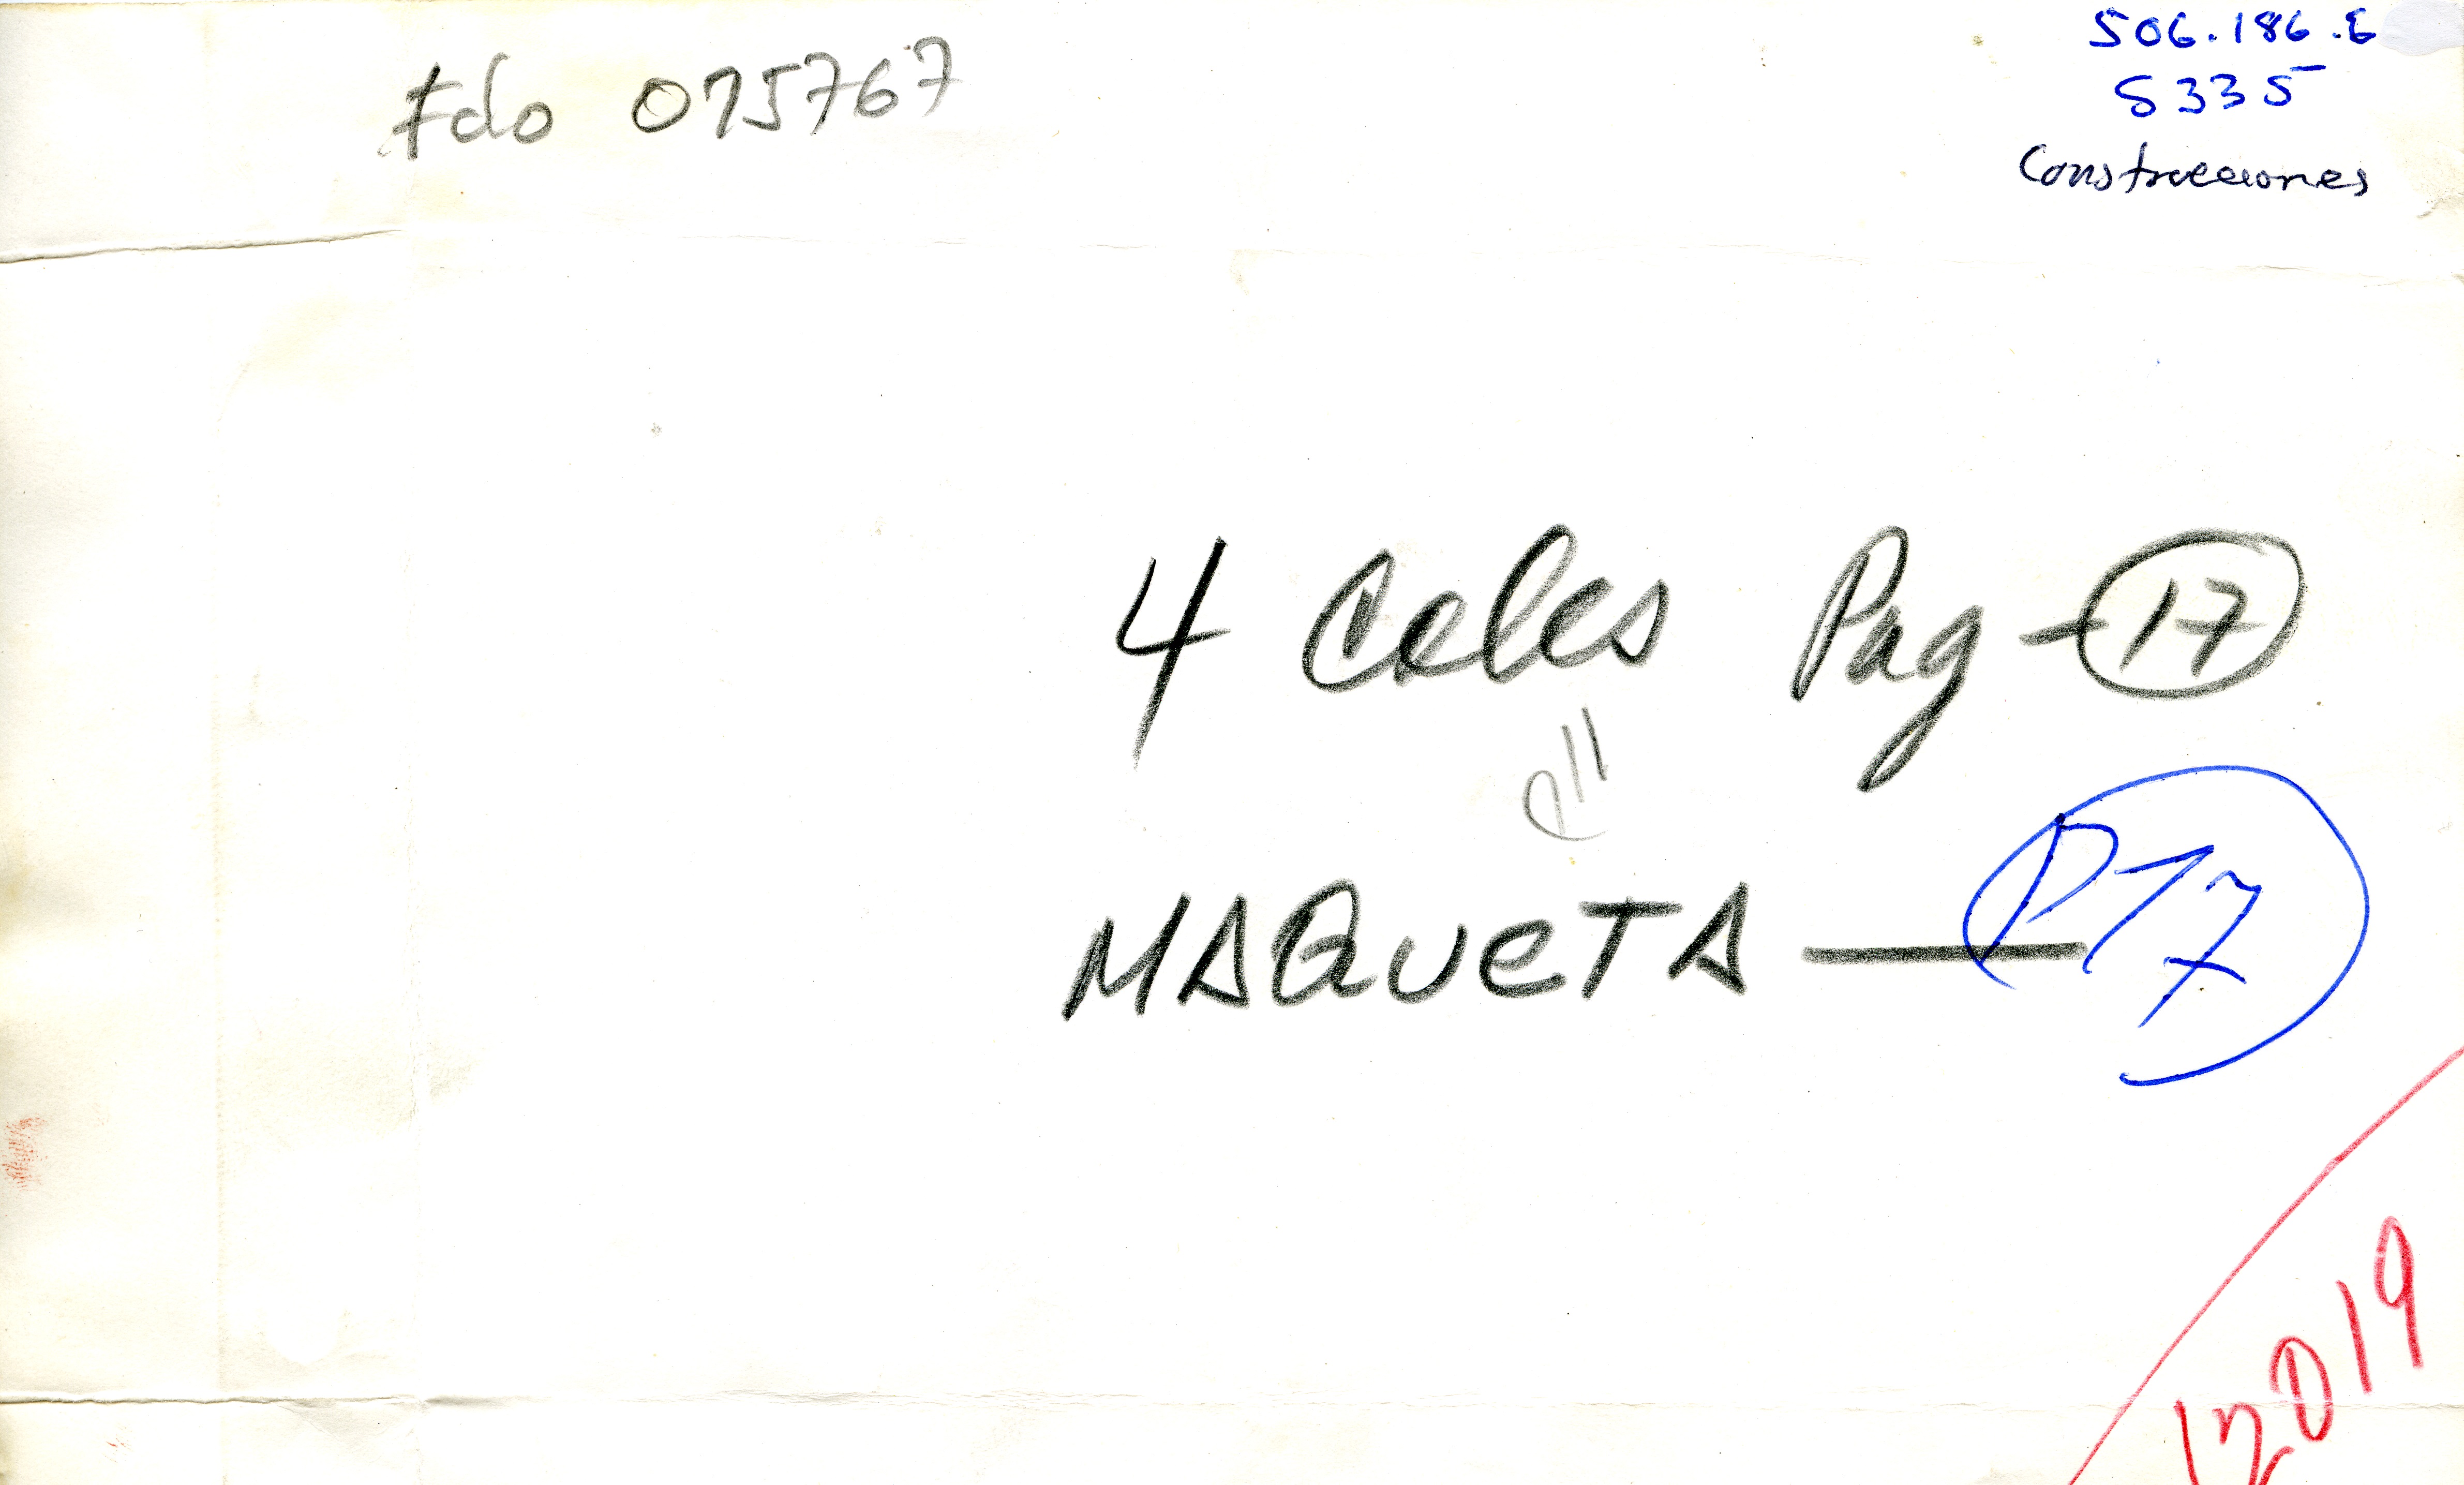 Fdo 015767
506.186.E
S335
Construcciones
4 Coles Pag - 17
MAQUETA — P17
12019